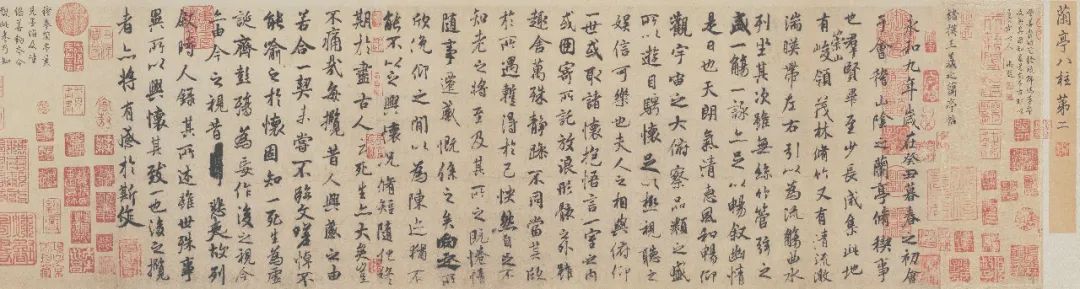 蘭亭八柱第二
褚模王羲之蘭亭帖
永和九年歲在癸丑暮春之初會
于會稽山陰之蘭亭脩稧事
也羣賢畢至少長咸集此地
有崇山峻領茂林脩竹又有清流激
湍暎帶左右引以為流觴曲水
列坐其次雖無絲竹管弦之
盛一觴一詠亦足以暢叙幽情
是日也天朗氣清惠風和暢仰
觀宇宙之大俯察品類之盛
所以遊目騁懷足以極視聽之
娛信可樂也夫人之相與俯仰
一世或取諸懷抱悟言一室之內
或因寄所託放浪形骸之外雖
趣舍萬殊靜躁不同當其欣
於所遇蹔得於己怏然自足不
知老之將至及其所之既惓情
隨事遷感慨係之矣向之所
欣俛仰之間以為陳迹猶不
能不以之興懷況脩短隨化終
期於盡古人云死生亦大矣豈
不痛哉每攬昔人興感之由
若合一契未嘗不臨文嗟悼不
能喻之於懷固知一死生為虛
誕齊彭殤為妄作後之視今
亦由今之視昔悲夫故列
叙時人錄其所述雖世殊事
異所以興懷其致一也後之攬
者亦將有感於斯文